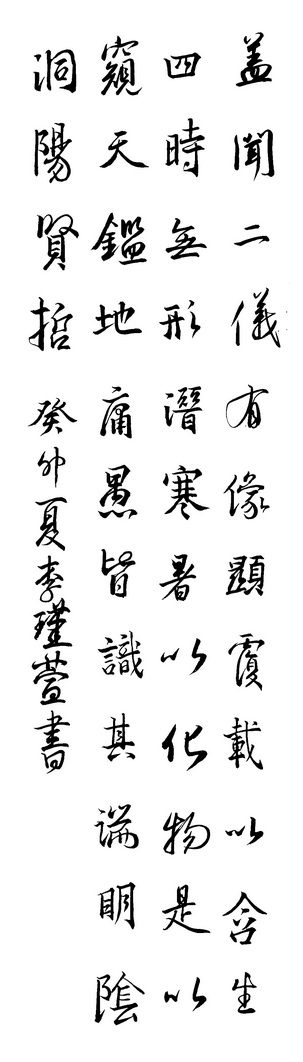 蓋聞二儀有像顯覆載以含生
四時無形潛寒暑以化物是以
窺天鑑地庸愚皆識其端明陰
洞陽賢哲
癸卯夏李瑾萱書